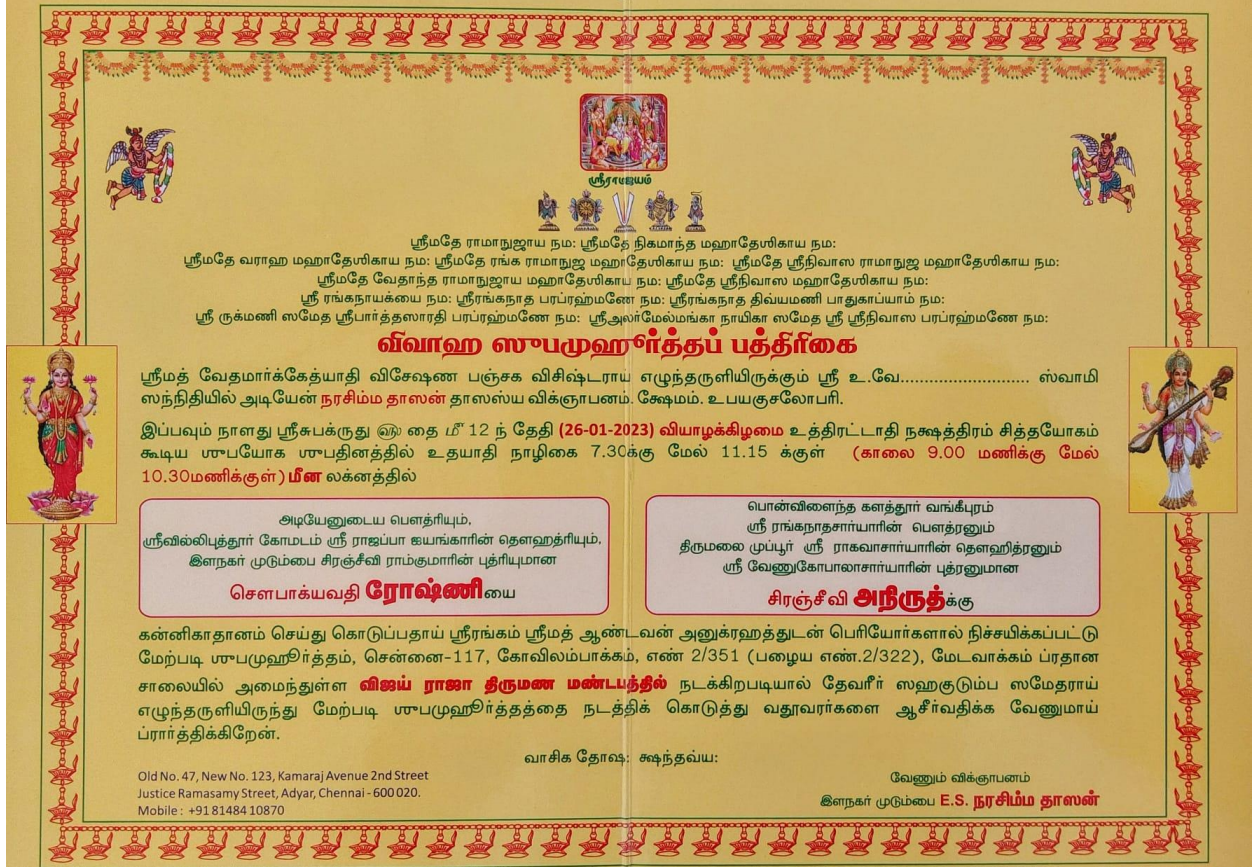 ஸ்ரீராமஜயம்
ஸ்ரீமதே ராமாநுஜாய நம: ஸ்ரீமதே நிகமாந்த மஹாதேஶிகாய நம:
ஸ்ரீமதே வராஹ மஹாதேஶிகாய நம: ஸ்ரீமதே ரங்க ராமாநுஜ மஹாதேஶிகாய நம: ஸ்ரீமதே ஸ்ரீநிவாஸ ராமாநுஜ மஹாதேஶிகாய நம:
ஸ்ரீமதே வேதாந்த ராமாநுஜாய மஹாதேஶிகாய நம: ஸ்ரீமதே ஸ்ரீநிவாஸ மஹாதேஶிகாய நம:
ஸ்ரீ ரங்கநாயக்யை நம: ஸ்ரீரங்கநாத பரப்ரஹ்மணே நம: ஸ்ரீரங்கநாத திவ்யமணி பாதுகாப்யாம் நம:
ஸ்ரீ ருக்மணி ஸமேத ஸ்ரீபார்த்தஸாரதி பரப்ரஹ்மணே நம: ஸ்ரீஅலர்மேல்மங்கா நாயிகா ஸமேத ஸ்ரீ ஸ்ரீநிவாஸ பரப்ரஹ்மணே நம:
விவாஹ ஸுபமுஹூர்த்தப் பத்திரிகை
ஸ்ரீமத் வேதமார்க்கேத்யாதி விசேஷண பஞ்சக விசிஷ்டராய் எழுந்தருளியிருக்கும் ஸ்ரீ உ.வே............................ ஸ்வாமி
ஸந்நிதியில் அடியேன் நரசிம்ம தாஸன் தாஸஸ்ய விக்ஞாபனம். க்ஷேமம். உபயகுசலோபரி.
இப்பவும் நாளது ஸ்ரீசுபக்ருது ௵ தை ௴ 12 ந் தேதி (26-01-2023) வியாழக்கிழமை உத்திரட்டாதி நக்ஷத்திரம் சித்தயோகம்
கூடிய ஶுபயோக ஶுபதினத்தில் உதயாதி நாழிகை 7.30க்கு மேல் 11.15 க்குள் (காலை 9.00 மணிக்கு மேல்
10.30மணிக்குள்) மீன லக்னத்தில்
அடியேனுடைய பௌத்ரியும்,
ஸ்ரீவில்லிபுத்தூர் கோமடம் ஸ்ரீ ராஜப்பா ஐயங்காரின் தௌஹத்ரியும்,
இளநகர் முடும்பை சிரஞ்சீவி ராம்குமாரின் புத்ரியுமான
சௌபாக்யவதி ரோஷ்ணியை
பொன்விளைந்த களத்தூர் வங்கீபுரம்
ஸ்ரீ ரங்கநாதசார்யாரின் பௌத்ரனும்
திருமலை முப்பூர் ஸ்ரீ ராகவாசார்யாரின் தௌஹித்ரனும்
ஸ்ரீ வேணுகோபாலாசார்யாரின் புத்ரனுமான
சிரஞ்சீவி அநிருத்க்கு
கன்னிகாதானம் செய்து கொடுப்பதாய் ஸ்ரீரங்கம் ஸ்ரீமத் ஆண்டவன் அனுக்ரஹத்துடன் பெரியோர்களால் நிச்சயிக்கப்பட்டு
மேற்படி ஶுபமுஹூர்த்தம், சென்னை-117, கோவிலம்பாக்கம், எண் 2/351 (பழைய எண்.2/322), மேடவாக்கம் ப்ரதான
சாலையில் அமைந்துள்ள விஜய் ராஜா திருமண மண்டபத்தில் நடக்கிறபடியால் தேவரீர் ஸஹகுடும்ப ஸமேதராய்
எழுந்தருளியிருந்து மேற்படி ஶுபமுஹூர்த்தத்தை நடத்திக் கொடுத்து வதூவரர்களை ஆசீர்வதிக்க வேணுமாய்
ப்ரார்த்திக்கிறேன்.
வாசிக தோஷ: க்ஷந்தவ்ய:
Old No. 47, New No. 123, Kamaraj Avenue 2nd Street
Justice Ramasamy Street, Adyar, Chennai - 600 020.
Mobile : +91 81484 10870
வேணும் விக்ஞாபனம்
இளநகர் முடும்பை E.S. நரசிம்ம தாஸன்